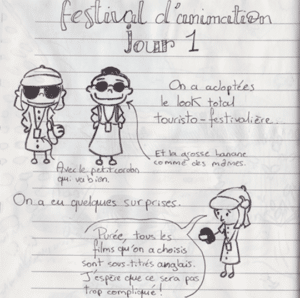 festival d'animation
jour 1
On a adoptées
le look total
touristo-festivalière.
Et la grosse banane
comme des mômes.
Avec le petit cordon
qui va bien.
On a eu quelques surprises.
Purée, tous les
films qu'on a choisis
sont sous-titrés anglais.
J'espère que ce sera pas
trop compliqué!